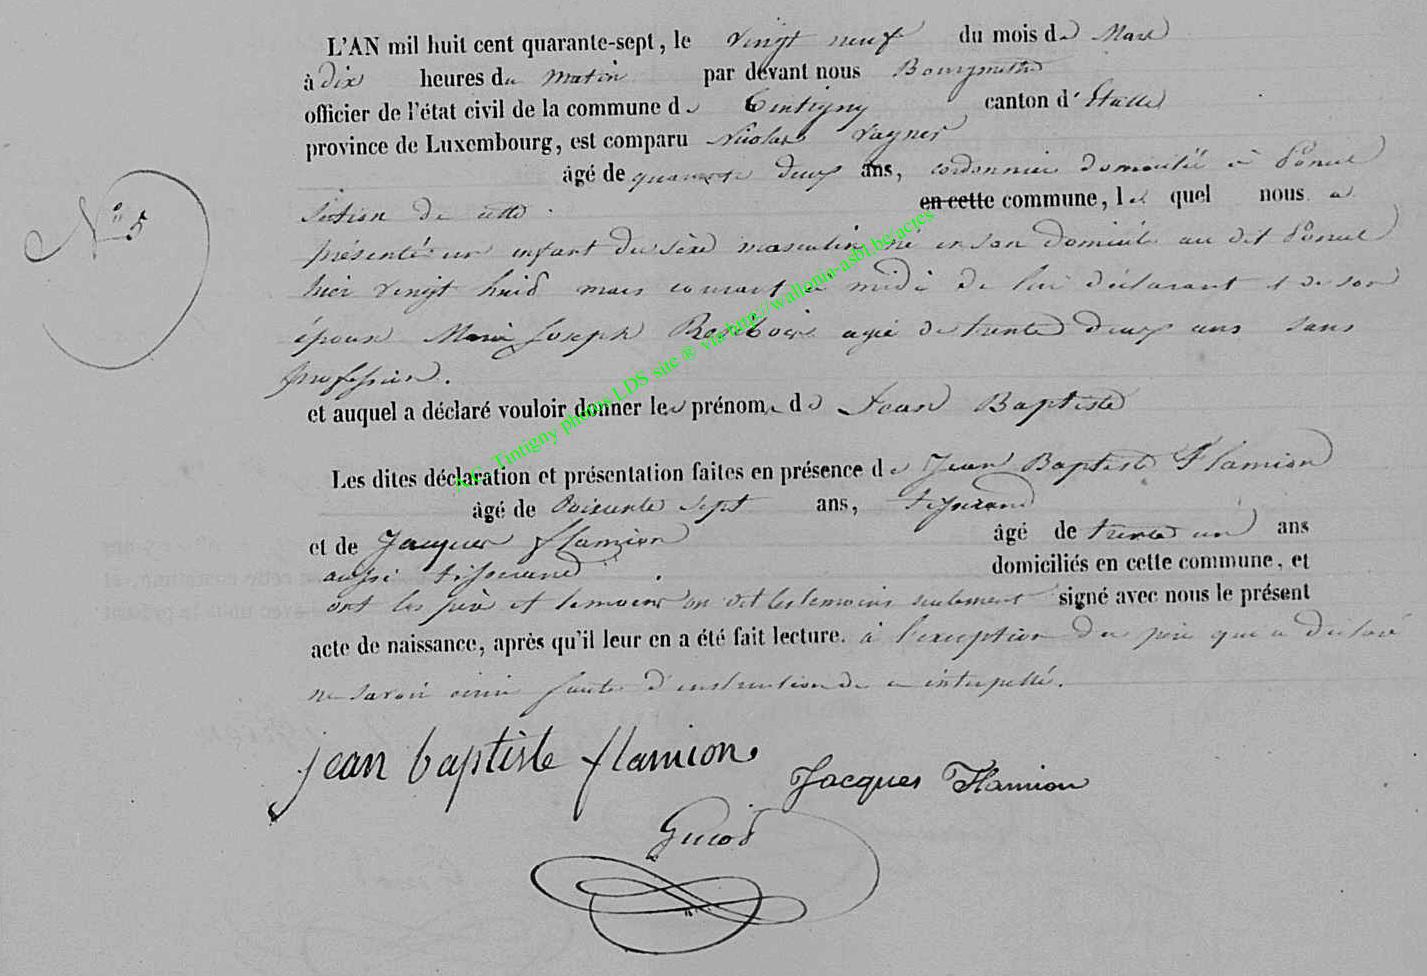 L'AN mil huit cent quarante-sept, le vingt neuf du mois de Mars
à dix heures du matin par devant nous Bourgmestre
officier de l'état civil de la commune de Tintigny canton d'Etalle
province de Luxembourg, est comparu Nicolas Vagner
âgé de quarante deux ans, cordonnier domicilié à Poncel
N° 5
section de cette en cette commune, lequel nous a
présenté un enfant du sexe masculin né en son domicile au dit Poncel
hier vingt huit mars courant à midi de lui déclarant et de son
épouse Marie Joseph agée de trente deux ans sans
profession.
et auquel a déclaré vouloir donner les prénoms de Jean Baptiste
Les dites déclaration et présentation faites en présence de Jean Baptiste Flamion
âgé de soixante sept ans, tisserand
et de Jacques Flamion âgé de trente un ans
aussi tisserand domiciliés en cette commune, et
ont les père et temoins on dit les temoins seulement signé avec nous le présent
acte de naissance, après qu'il leur en a été fait lecture. à l'exception du père qui a déclaré
ne savoir écrire faute d'instruction de ce interpellé.
jean baptiste flamion
Jacques Flamion
A.C. Tintigny photos LDS site ® via http://wallonia-asbl.be/actes